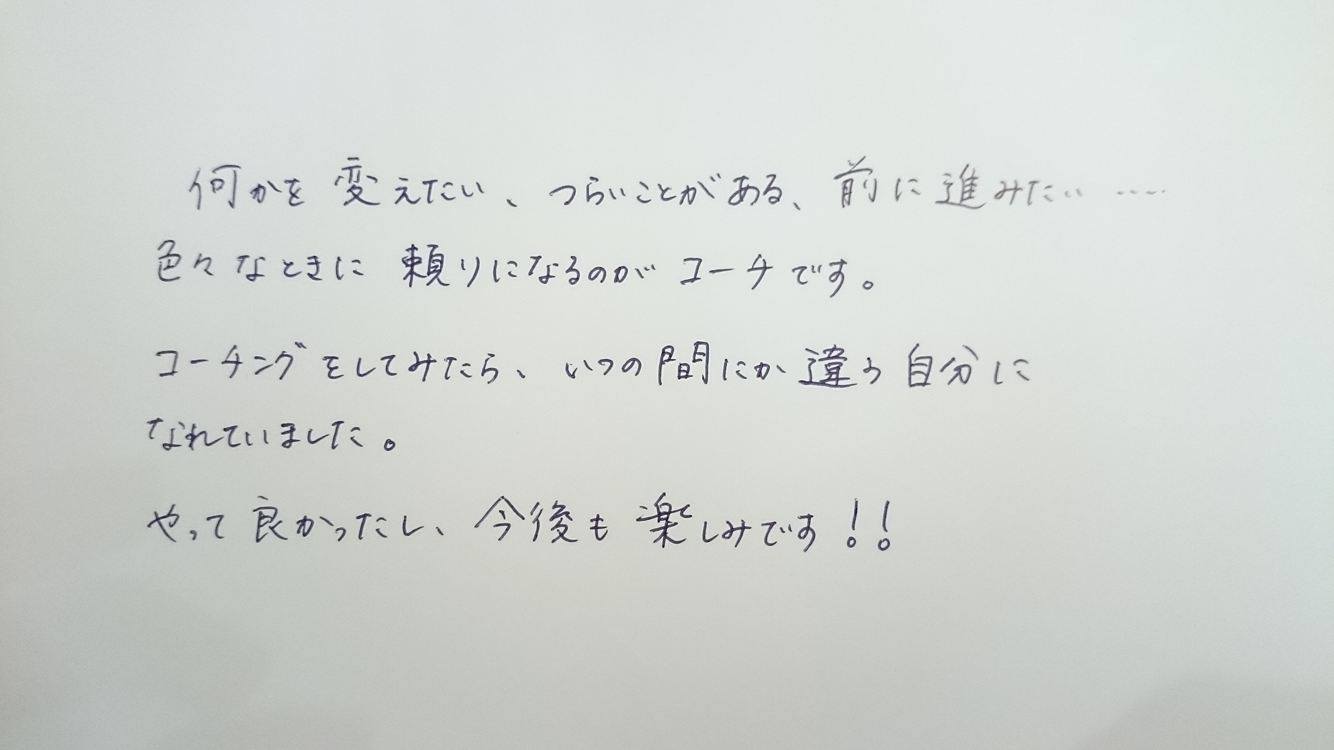 何かを変えたい、つらいことがある、前に進みたい……
色々なときに頼りになるのがコーチです。
コーチングをしてみたら、いつの間にか違う自分に
なれていました。
やって良かったし、今後も楽しみです!!